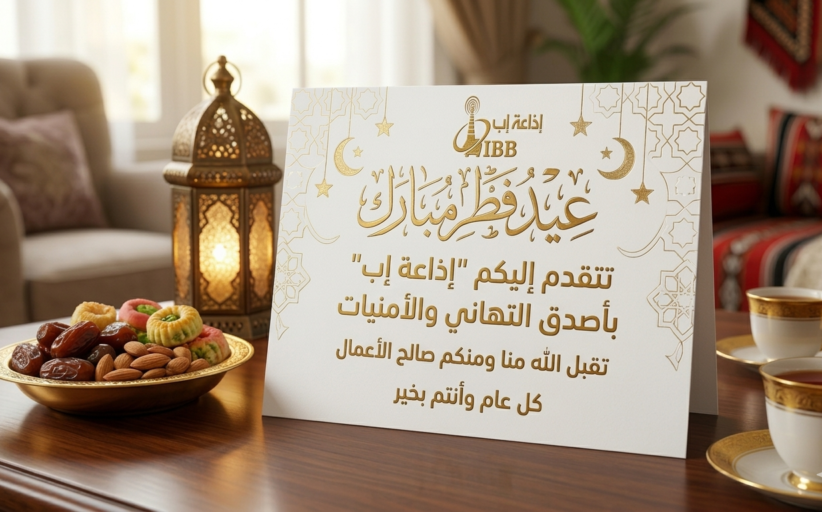 إذاعة إب
IBB
عِيدُ فِطْرٍ مُبَارَك
تتقدم إليكم "إذاعة إب"
بأصدق التهاني والأمنيات
تقبل الله منا ومنكم صالح الأعمال
كل عام وأنتم بخير